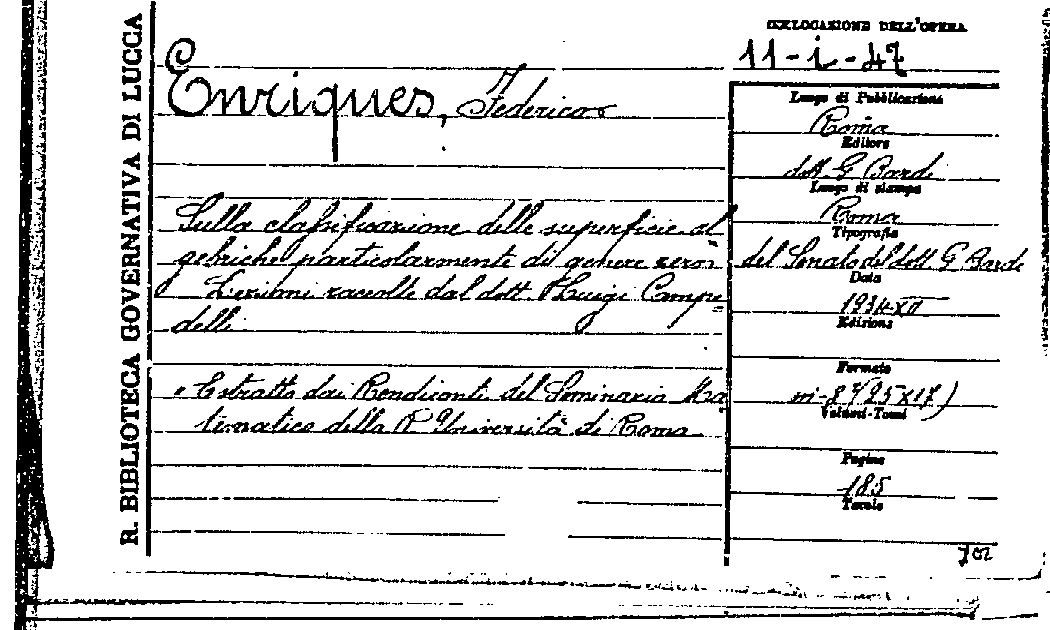 R. BIBLIOTECA GOVERNATIVA DI LUCCA
COLLOCAZIONE DELL'OPERA
11-i-47
Enriques, Federico
Sulla classificazione delle superficie al=
gebriche particolarmente di genere zero.
Lezioni raccolte dal dott. Luigi Campe=
delli.
Estratto dai Rendiconti del Seminario Ma
tematico della R. Università di Roma
Luogo di Pubblicazione
Roma
Editore
dott. G. Bardi
Luogo di stampa
Roma
Tipografia
del Senato del dott. G. Bardi
Data
1934-XII
Edizione
Formato
in-8° (25x17)
Volumi-Tomi
Pagine
185
Tavole